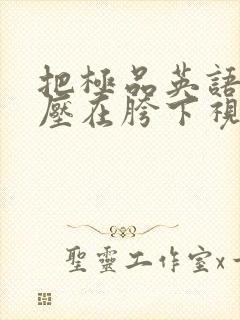 把極品英語
壓在胯下視
聖靈工作室x